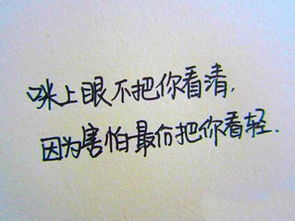 咪上眼不把你看清,
因为害怕最后把你看轻.